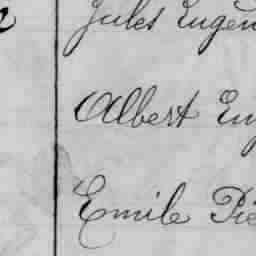 Jules Eugen
Albert Eug
Emile Pie